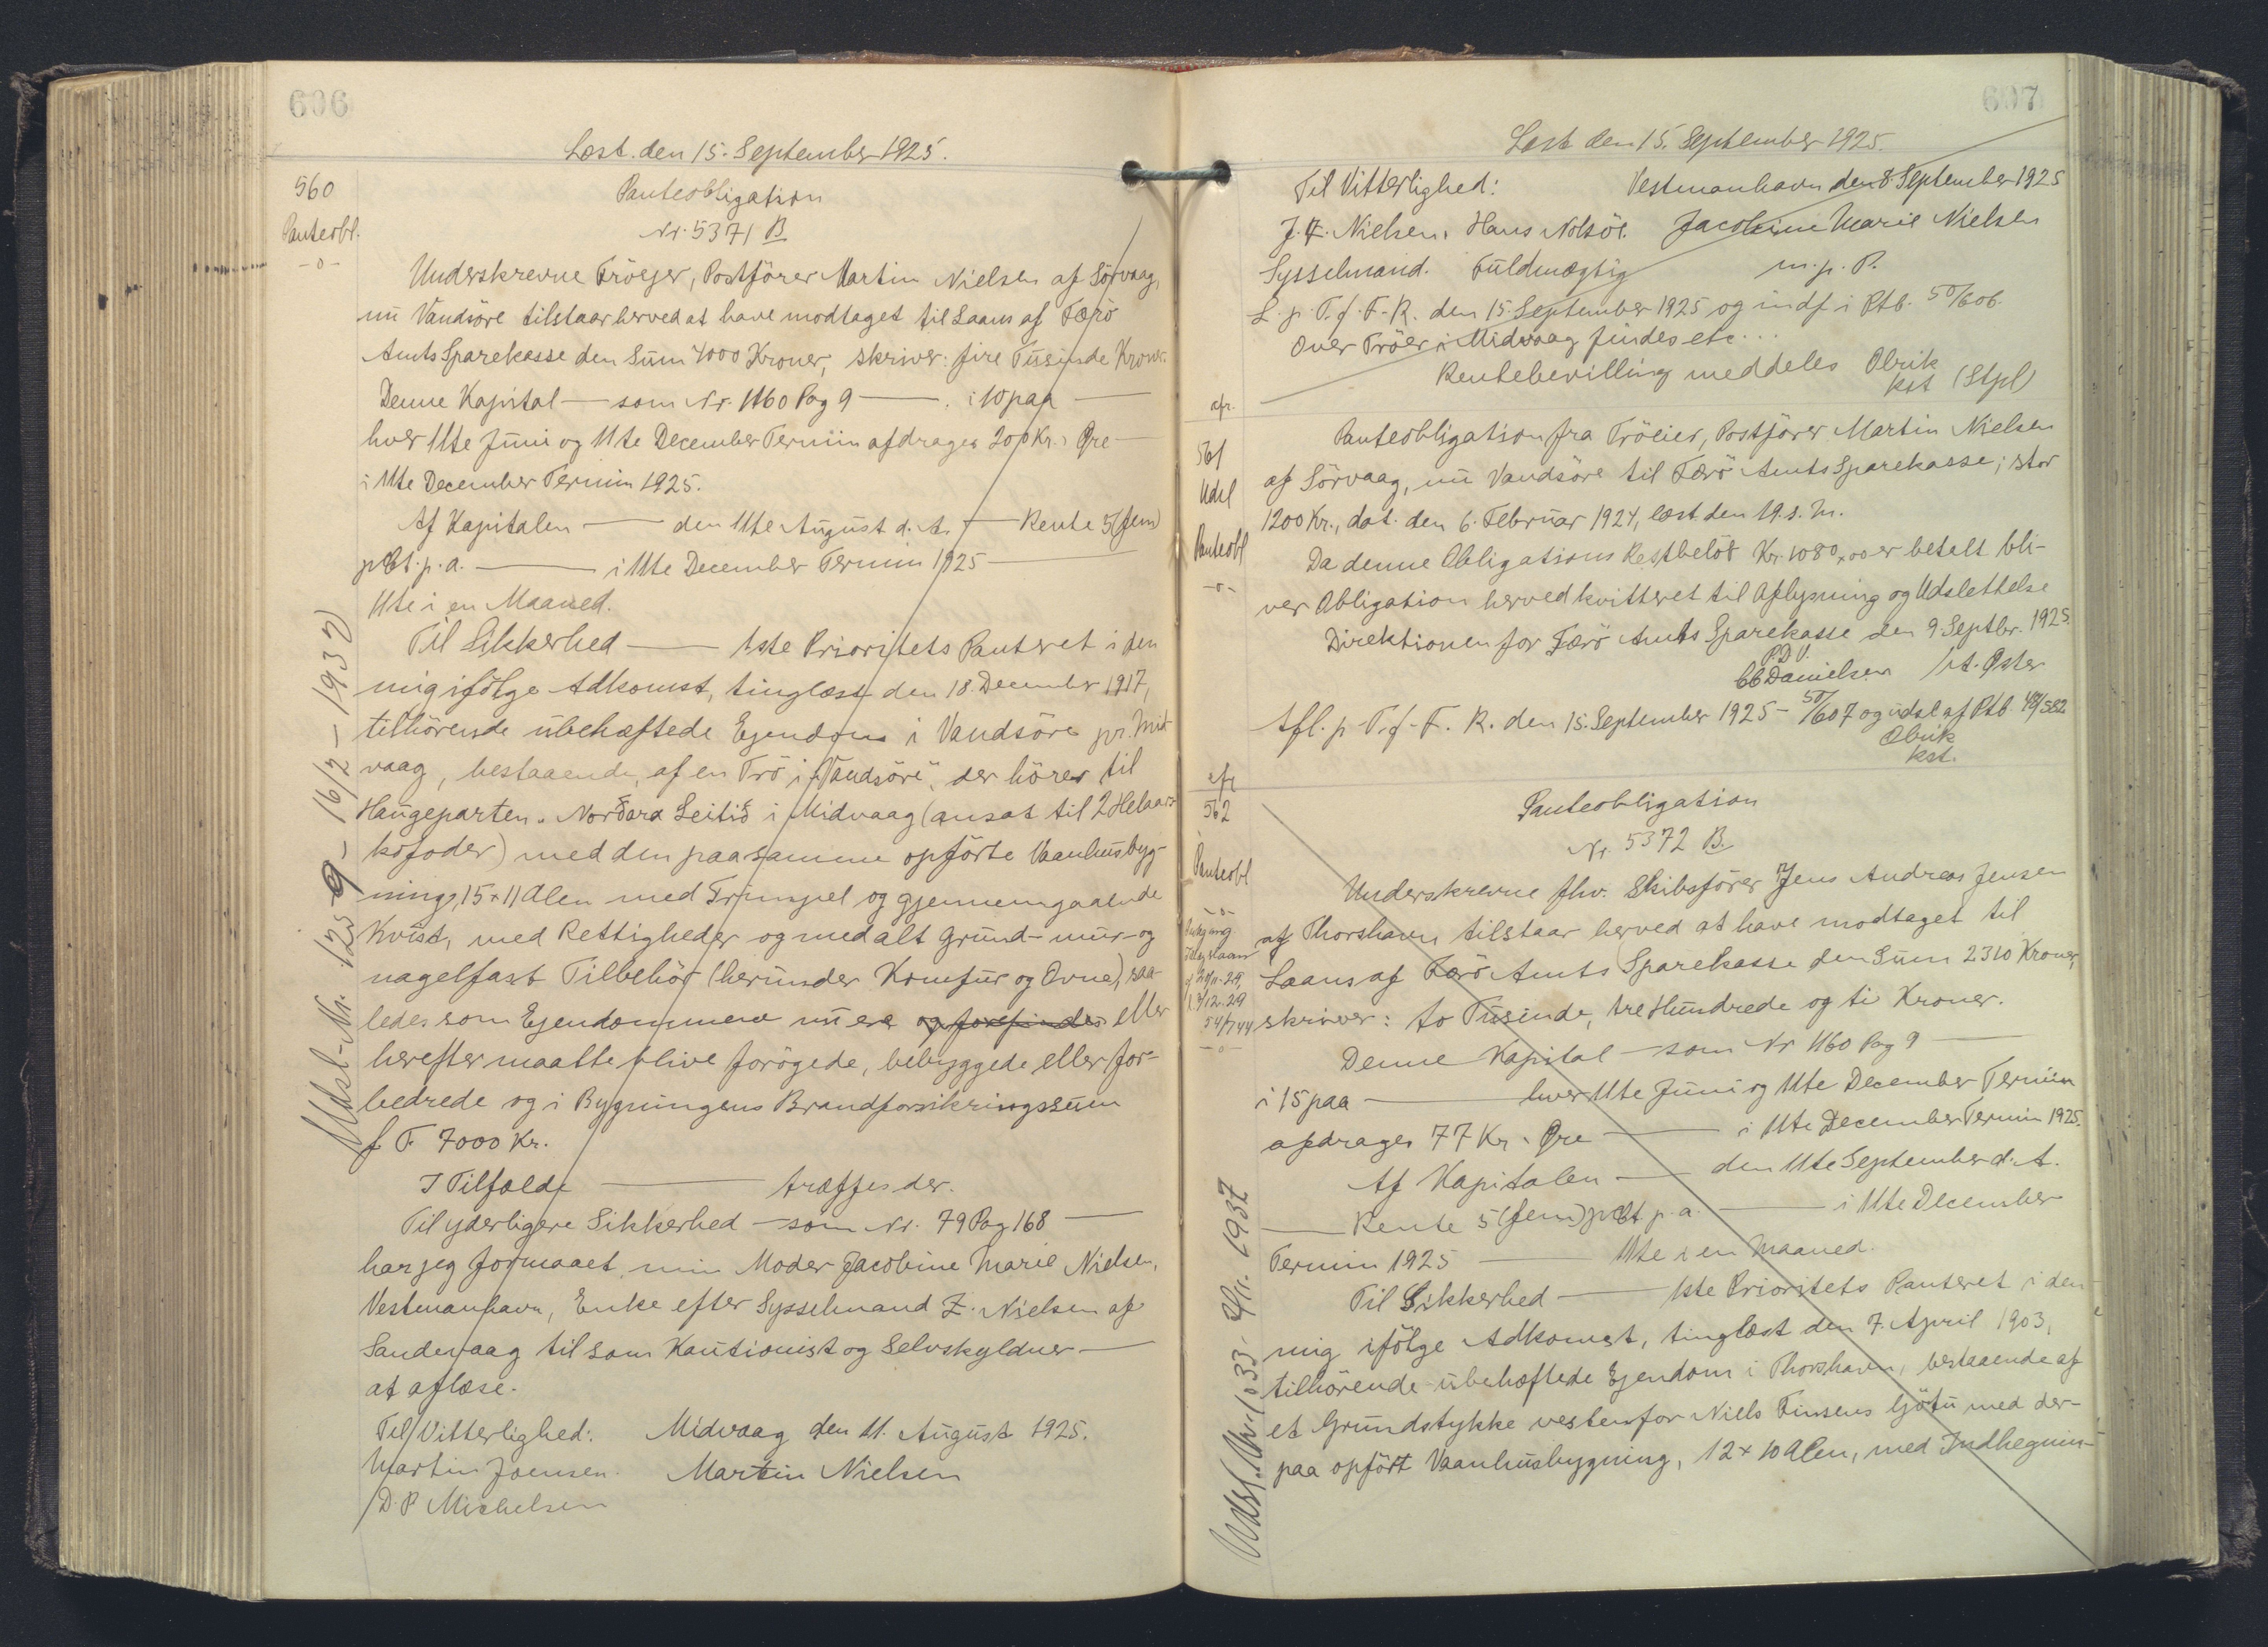 606
Læst. den 15. September 1925.
560
Panteobl.
-o-
Panteobligation
Nr. 5371 B
Underskrevne Tröejer, Postförer Martin Nielsen af Sörvaag,
nu Vandsöre tilstaar herved at have modtaget til Laans af Færö
Amts Sparekasse den Sum 4000 Kroner, skriver: fire Tusinde Kroner.
Denne Kapital — som Nr. 1160 Pag 9 — . i 10 paa —
hver 11te Juni og 11te December Termin afdrages 200 Kr. " Øre —
i 11te December Termin 1925.
Af Kapitalen — den 11te August d. A. — Rente 5 (fem)
pCt. p. a. — i 11te December Termin 1925 —
11te i en Maaned.
Til Sikkerhed — 1ste Prioritets Panteret i den
mig ifölge Adkomst, tinglæst den 18. December 1917,
tilhörende ubehæftede Ejendom i Vandsöre pr. Mid-
vaag, bestaaende, af en Trö i "Vandsöre", der hörer til
Haugeparten. Norðara Leitið i Midvaag (ansat til 2 Helaars
kofoder) med den paa samme opförte Vaanhusbyg-
ning, 15 x 11 Alen med Trimpel og gjennemgaaende
Kvist, med Rettigheder og med alt grund- mur- og
nagelfast Tilbehör (herunder Komfur og Ovne), saa-
ledes som Ejendommene nu ere og forefindes eller
herefter maatte blive forögede, bebyggede eller for-
bedrede og i Bygningens Brandforsikringssum
f. T. 7000 Kr.
I Tilfælde — træffes der.
Til yderligere Sikkerhed — som Nr. 79 Pag 168 —
har jeg formaaet min Moder Jacobine Marie Nielsen,
Vestmanhavn, Enke efter Sysselmand Z. Nielsen af
Sandevaag til som Kautionist og Selvskyldner —
at aflæse.
Til Vitterlighed: Midvaag den 11. August 1925.
Martin Joensen. Martin Nielsen
D. P Michelsen
Udsl-Nr. 125 9 - 16/2 - 1937
607
Læst den 15. September 1925.
Til Vitterlighed: Vestmanhavn den 8. September 1925
J. F. Nielsen, Hans Nolsöe. Jacobine Marie Nielsen
Sysselmand. Fuldmægtig m. p. P.
L. p. T. f. F. R. den 15. September 1925 og indf i Ptb. 50/606.
Over Tröer i Midvaag findes etc...
Rentebevilling meddeles Obrik
kst (Stpl)
afr.
561
Udsl
Panteobl
-o-
Panteobligation fra Tröeier, Postförer Martin Nielsen
af Sörvaag, nu Vandsöre til Færö Amts Sparekasse, stor
1200 Kr., dat. den 6. Februar 1924, læst den 19. s. M.
Da denne Obligations Restbelöb Kr. 1080,00 er betalt bli-
ver Obligation herved kvitteret til Aflysning og Udslettelse
Direktionen for Færö Amts Sparekasse den 9. Septbr. 1925.
P. D V.
CC Danielsen A. Øster
Afl. p. T. f. F. R. den 15. September 1925 - 50/607 og udsl af Ptb. 48/582
Obrik
kst.
afr
562
Panteobl
-o-
-o-
Panteobligation
Nr. 5372 B.
Underskrevne fhv. Skibsförer Jens Andreas Jensen
af Thorshavn tilstaar herved at have modtaget til
Laans af Færö Amts Sparekasse den Sum 2310 Kroner,
skriver: to Tusinde, tre Hundrede og ti Kroner.
Denne Kapital — som Nr 1160 Pag 9 —
i 15 paa — hver 11te Juni og 11te December Termin
afdrages 77 Kr. " Øre — i 11te December Termin 1925.
Af Kapitalen — den 11te September d. A.
— Rente 5 (fem) pCt. p. a. — i 11te December
Termin 1925 — 11te i en Maaned.
Til Sikkerhed — 1ste Prioritets Panteret i den
mig ifölge Adkomst, tinglæst den 7. April 1903,
tilhörende ubehæftede Ejendom i Thorshavn, bestaaende af
et Grundstykke vestenfor Niels Finsens Gjötu med der-
paa opfört Vaanhusbygning, 12 x 10 Alen, med Indhegnin-